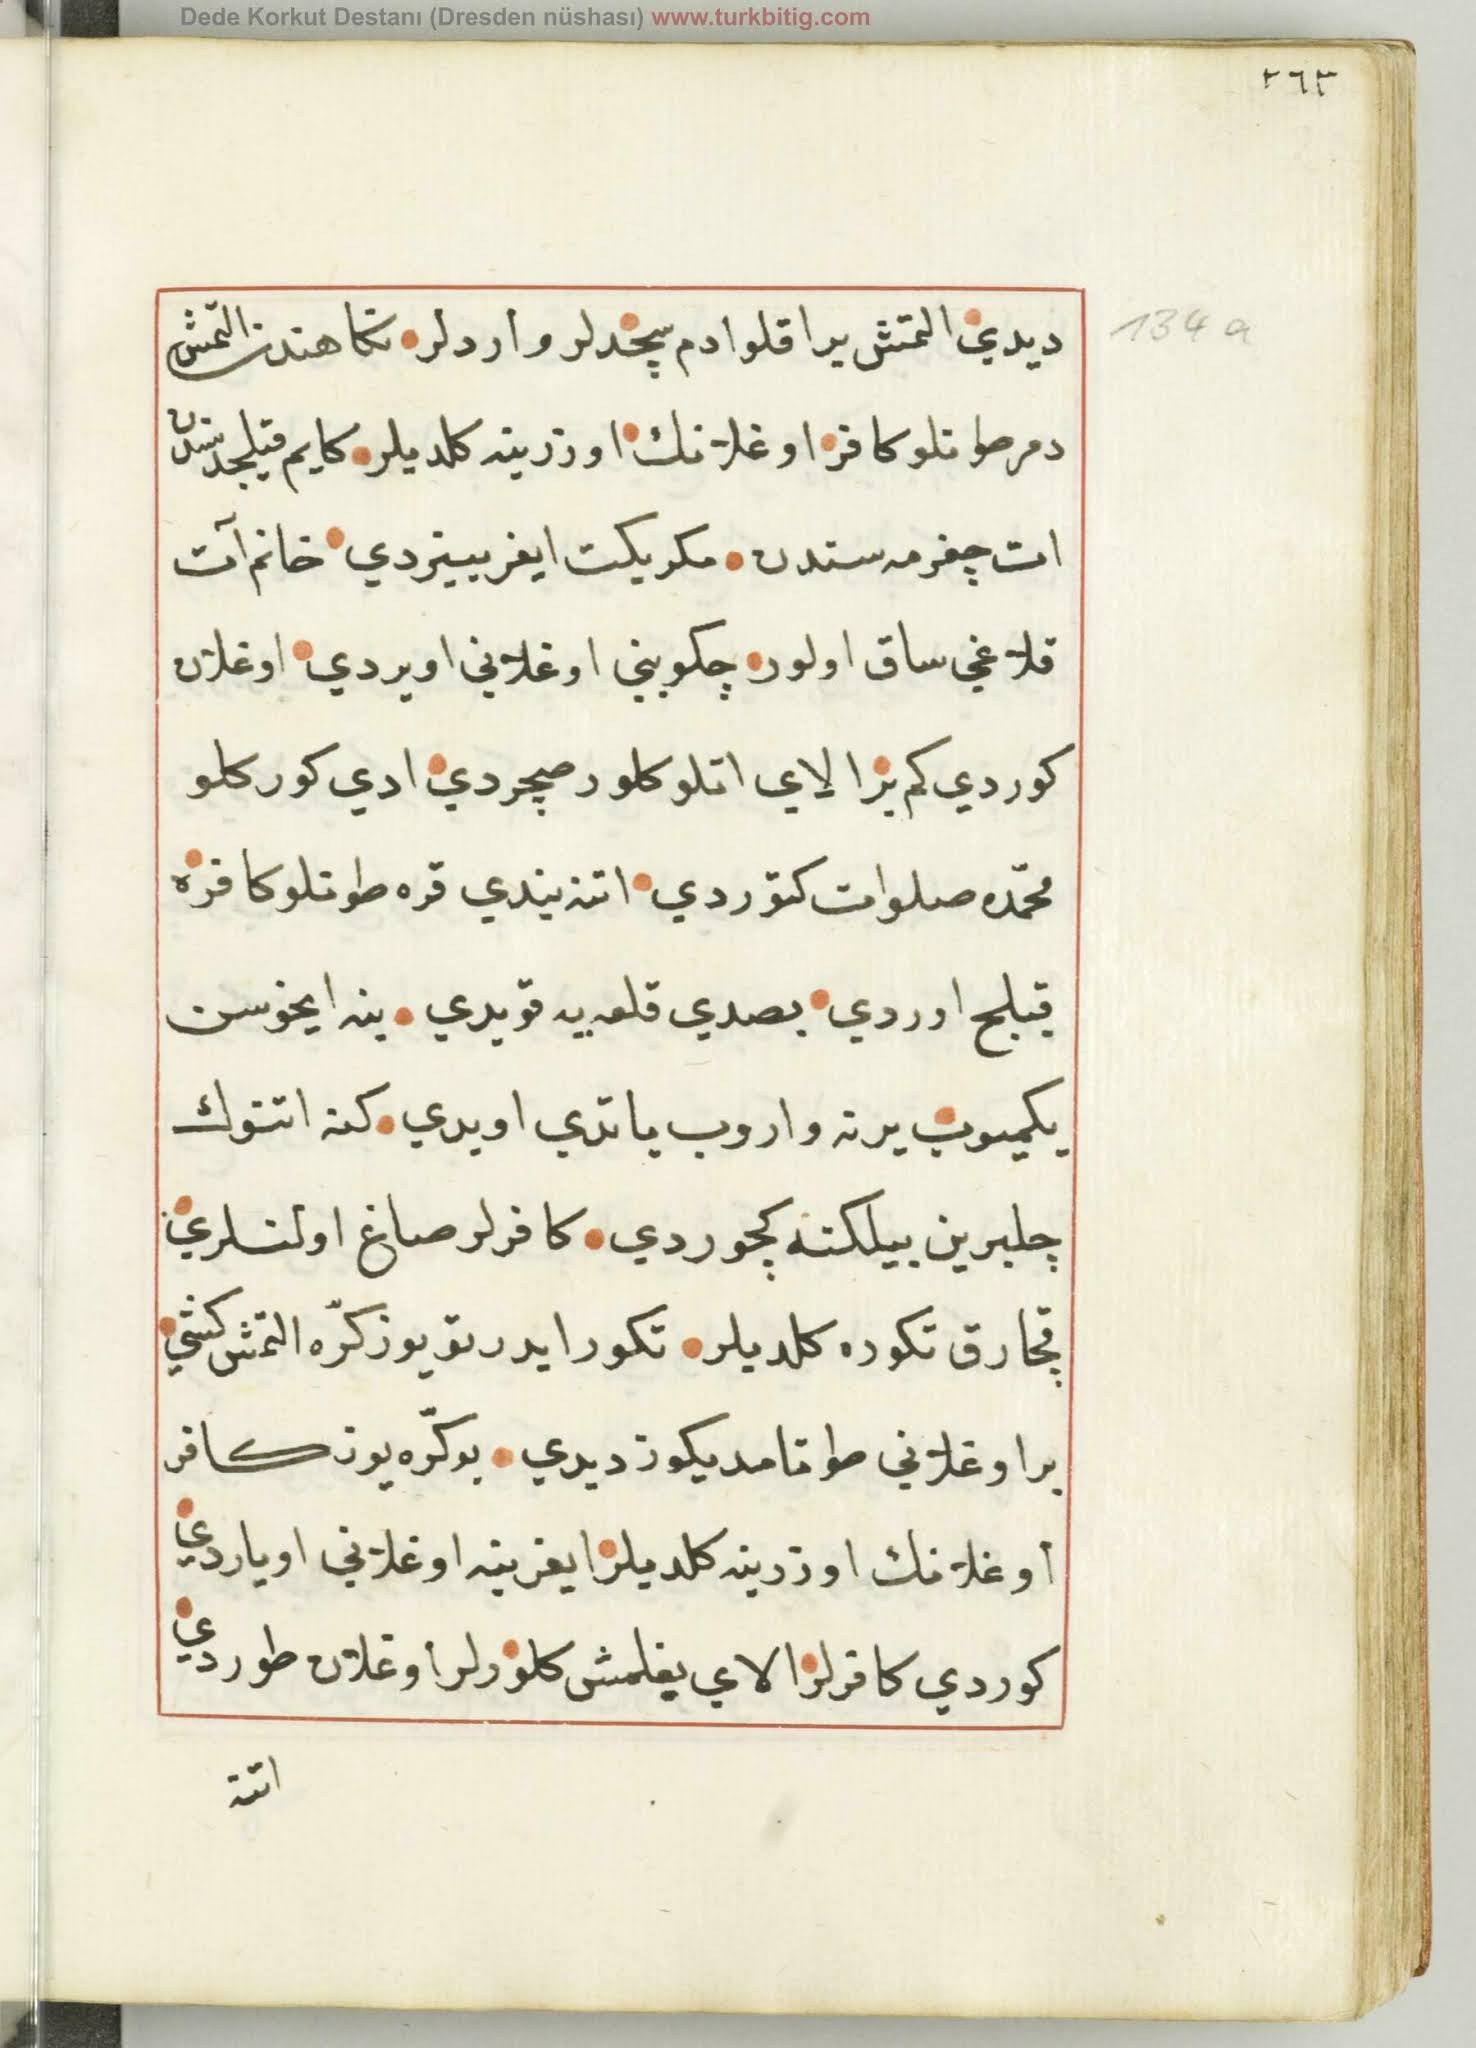 Dede Korkut Destanı (Dresden nüshası) www.turkbitig.com
٢٦٣
134 a
ديدي التمش يراقلو ادم سچدلر واردلر نكاهندن التمش
دمر طونلو كافر اوغلانك اوزرينه كلديلر كايم قيلجدسندن
ات چغرمه سندن مكر يكت ايغر بينردي خانم آت
قلاغي ساق اولور چكوبني اوغلاني اويردي اوغلان
كوردي كم بر الاي اتلو كلور صچردي ادي كوركلو
محمّده صلوات كتوردي اتنه بندي قره طونلو كافره
قيلج اوردي بصدي قلعه يه قويدي ينه ايخوسن
يكميوب يرنه واروب ياتدي اويدي كنه اتنوك
چلبرين بيلكنه كچوردي كافرلر صاغ اولنلري
قچارق تكوره كلديلر تكور ايدر تو يوزكره التمش كشي
بر اوغلاني طوتامديكوز ديدي بو كرّه يوز كافر
اوغلانك اوزرينه كلديلر ايغر ينه اوغلاني اوياردي
كوردي كافرلر الاي يغلمش كلورلر اوغلان طوردي
اتنه